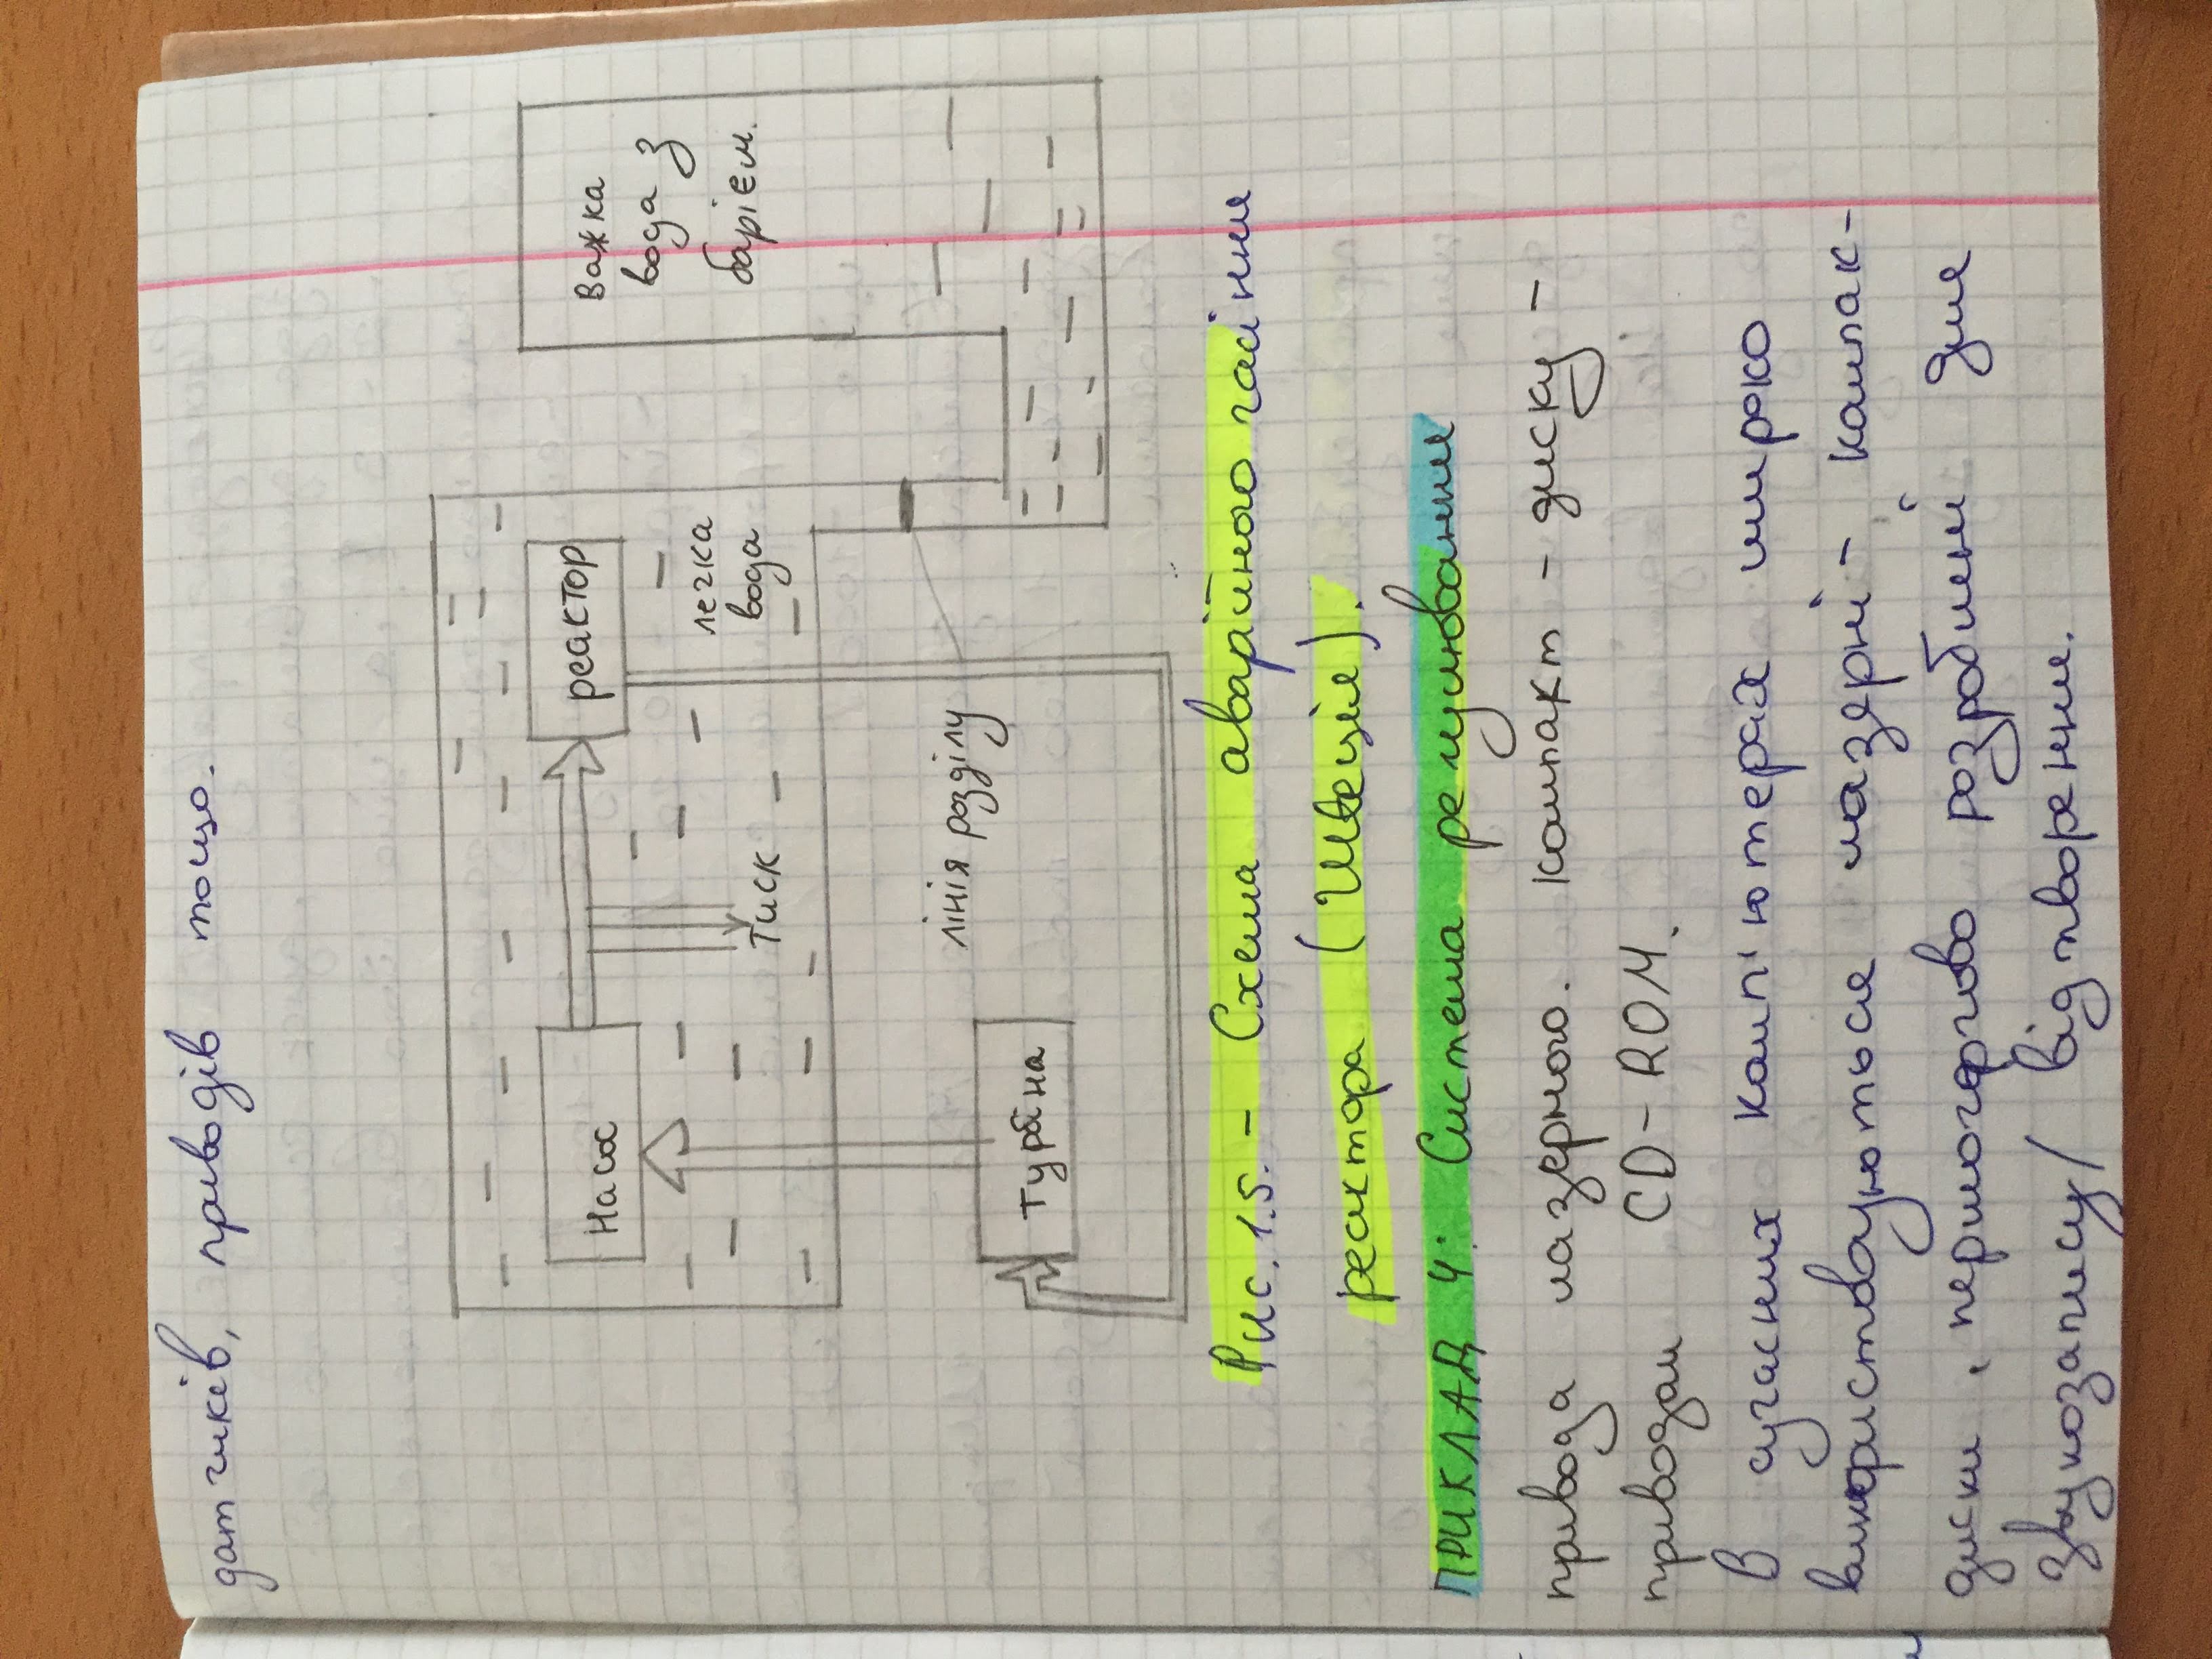 датчиків, приводів тощо.
Насос
реактор
Важка
вода з
барієм.
легка
вода
Тиск
лінія розділу
Турбіна
Рис. 1.5. – Схема аварійного гасіння
реактора (Швеція).
ПРИКЛАД 4: Система регулювання
привода лазерного. компакт - диску -
приводам CD-ROM.
В сучасних комп'ютерах широко
використовуються лазерні - компак-
диски, першочергово розроблені для
звукозапису/ відтворення.